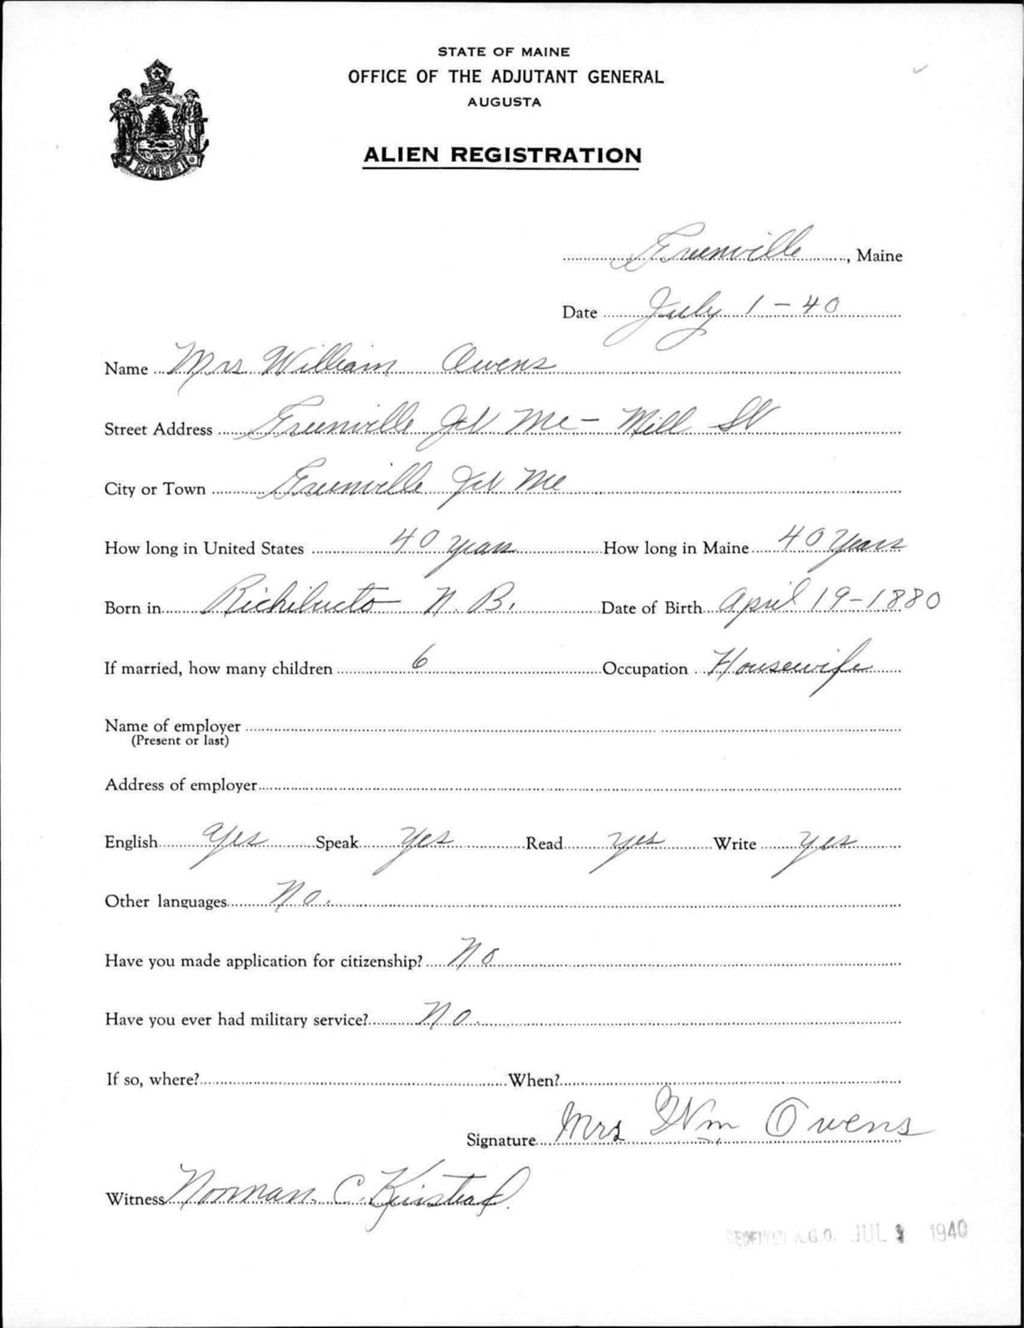 STATE OF MAINE
OFFICE OF THE ADJUTANT GENERAL
AUGUSTA
ALIEN REGISTRATION
MAINE
Greenville, Maine
Date July 1-40
Name Mrs William Owens
Street Address Greenville Jct Me - Mill St
City or Town Greenville Jct Me
How long in United States 40 years How long in Maine 40 Years
Born in Richibucto N.B. Date of Birth April 19-1880
If married, how many children 6 Occupation Housewife
Name of employer
(Present or last)
Address of employer
English yes Speak Yes Read yes Write yes
Other languages No.
Have you made application for citizenship? No
Have you ever had military service? No
If so, where? When?
Signature Mrs Wm Owens
Witness Norman C.
A.G.O. JUL 1940